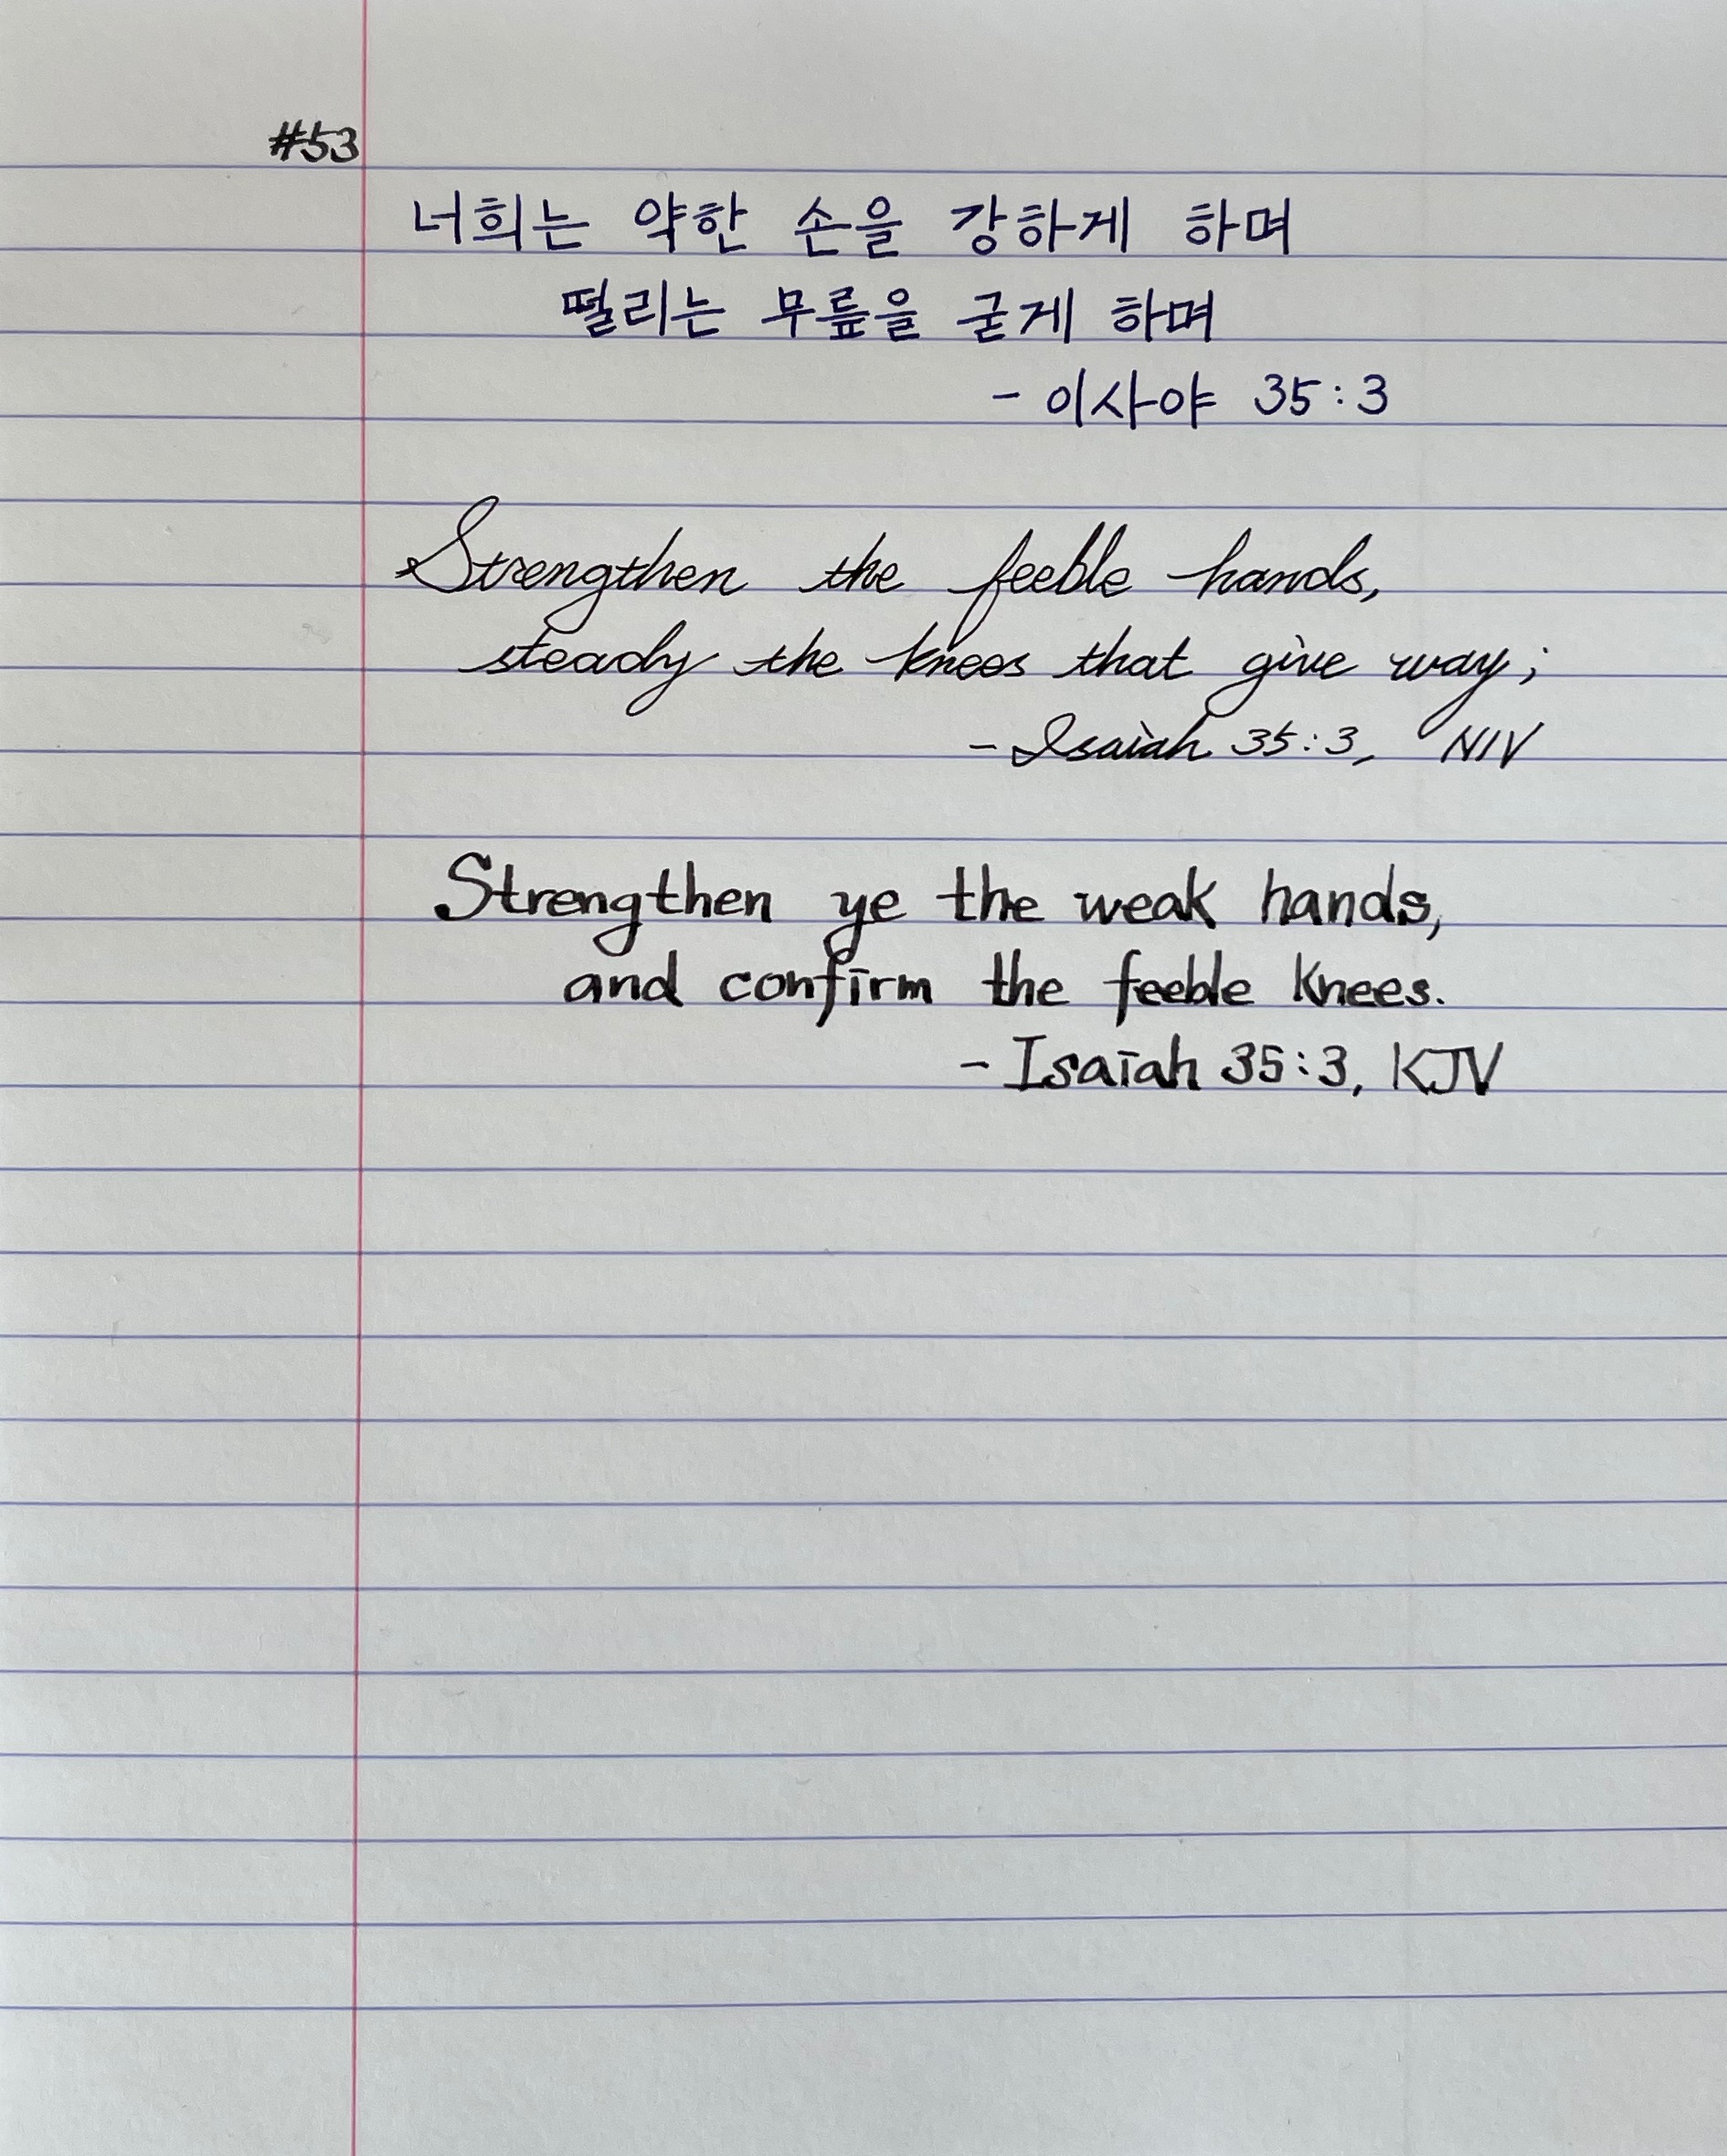 #53
너희는 약한 손을 강하게 하며
떨리는 무릎을 굳게 하며
- 이사야 35:3
Strengthen the feeble hands,
steady the knees that give way;
- Isaiah 35:3, NIV
Strengthen ye the weak hands,
and confirm the feeble knees.
- Isaiah 35:3, KJV